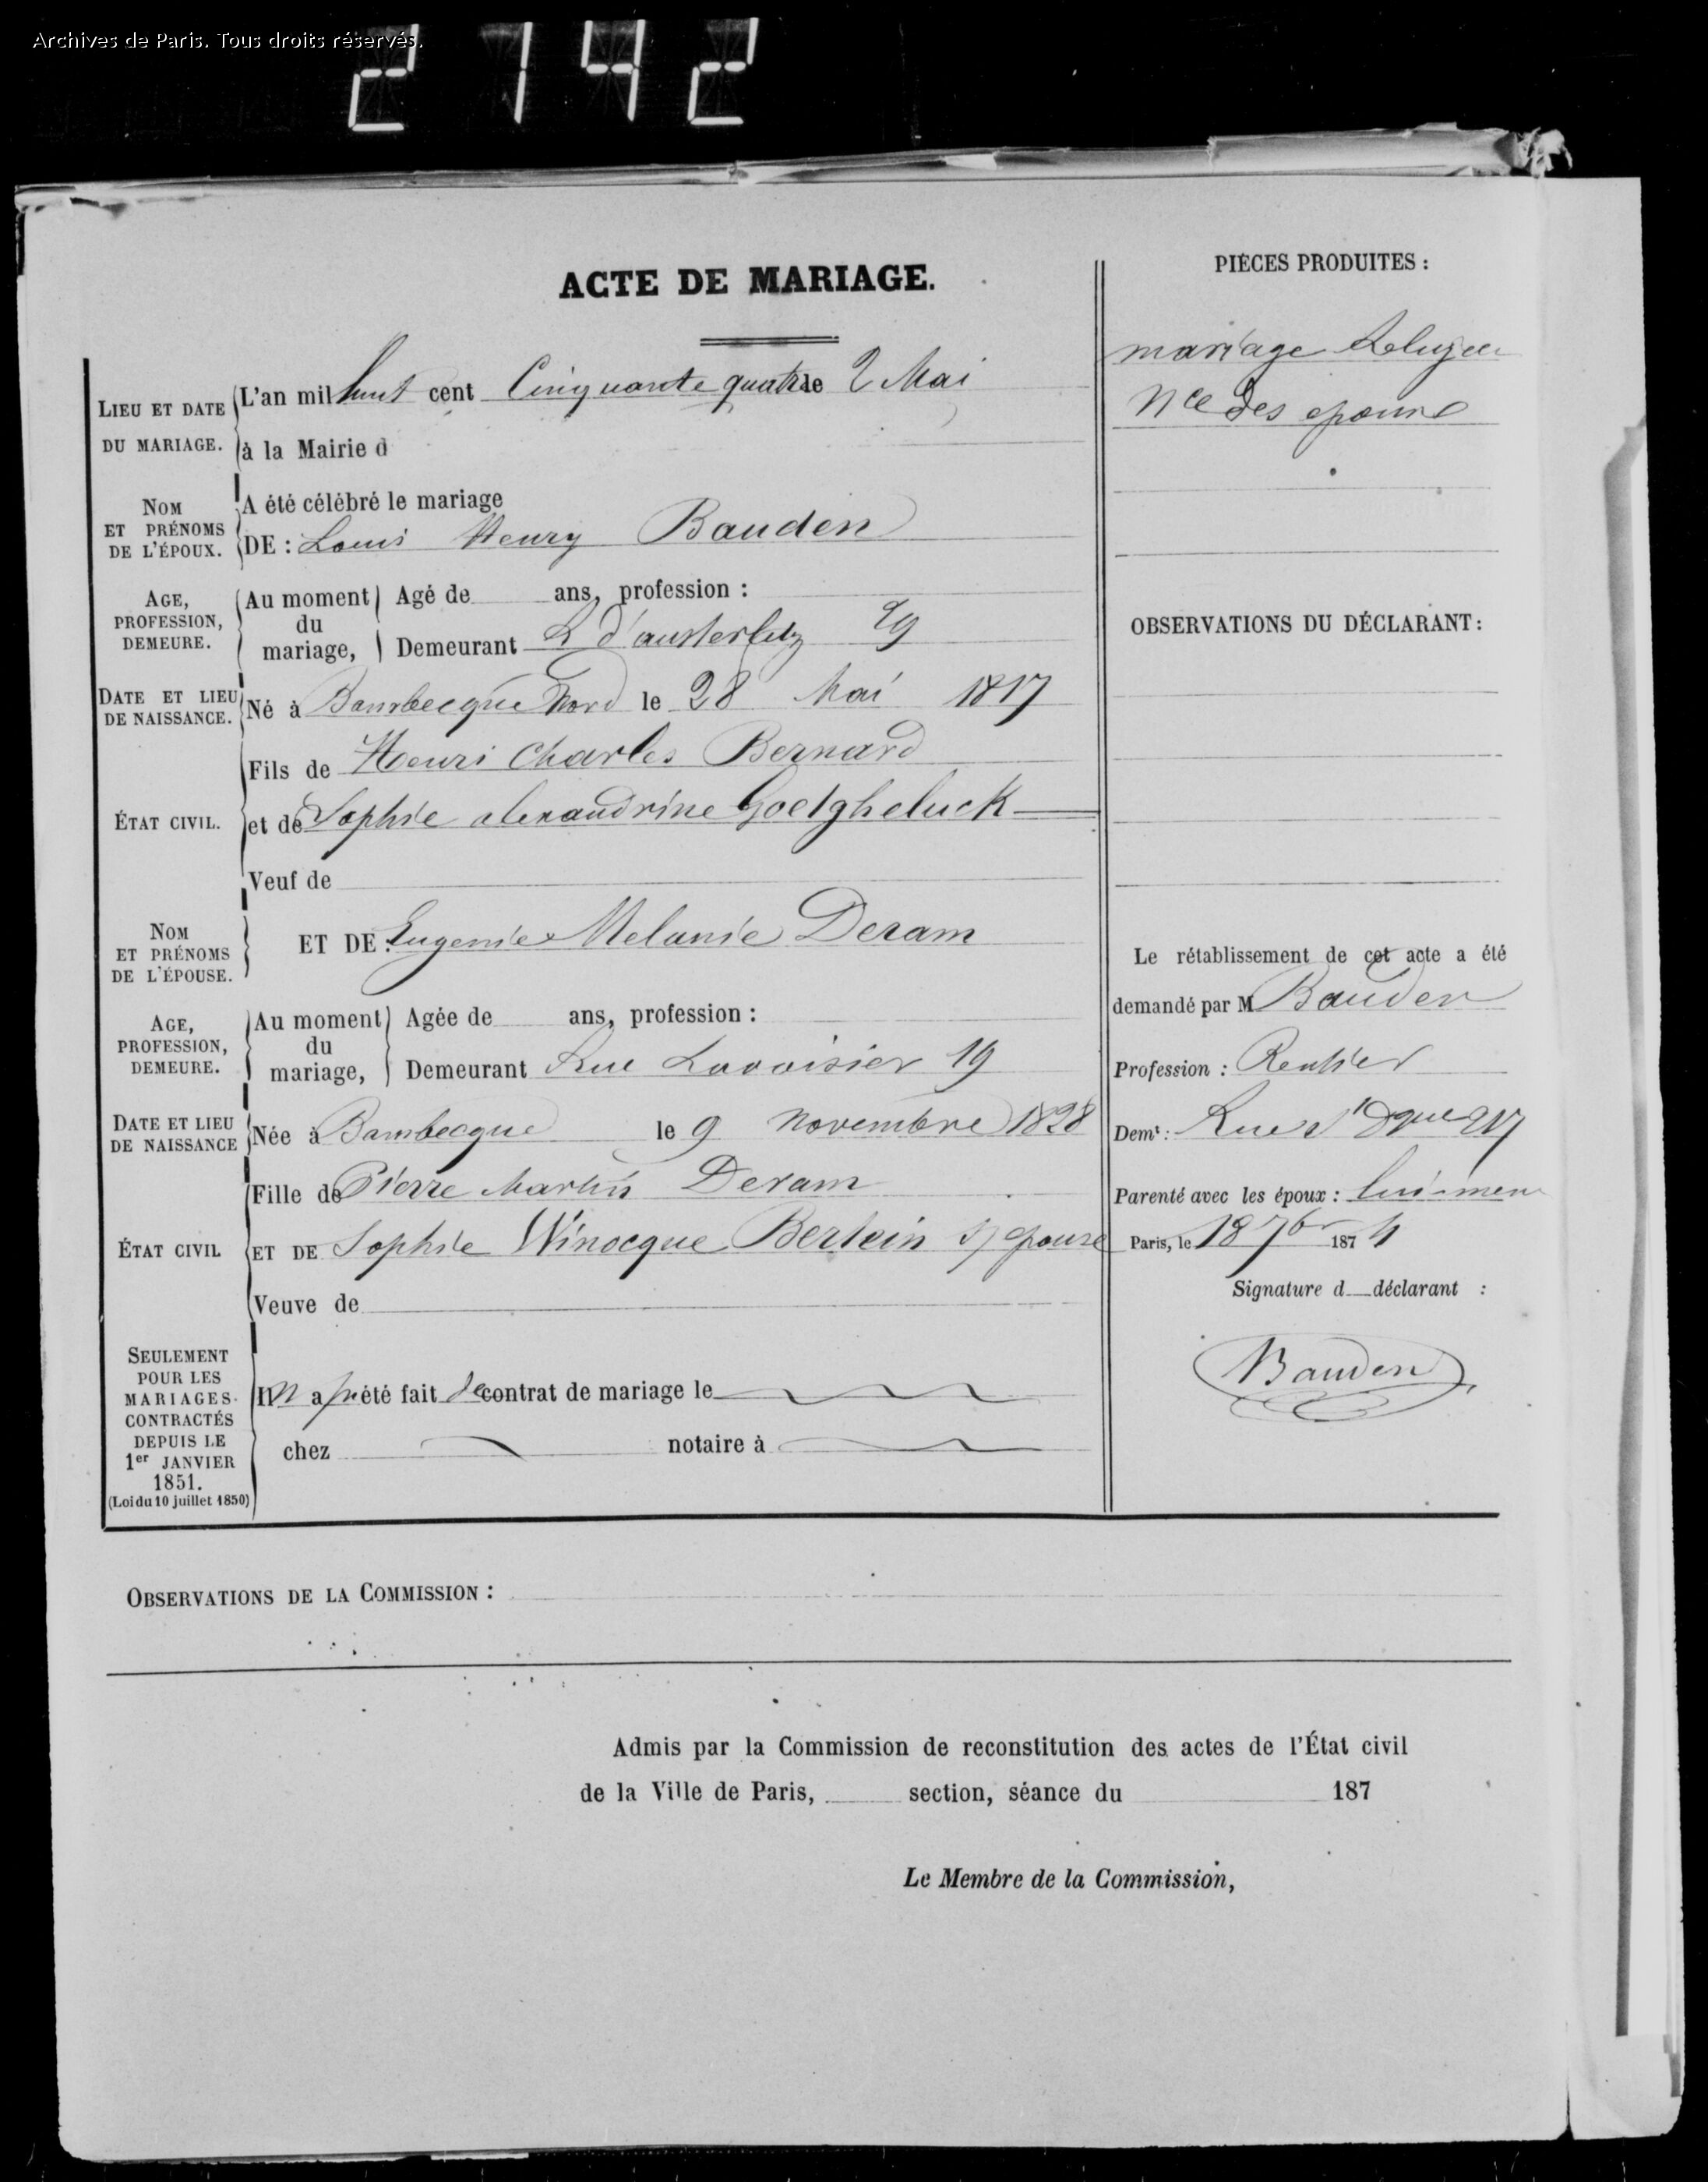 Archives de Paris. Tous droits réservés.
2742
ACTE DE MARIAGE.
LIEU ET DATE DU MARIAGE.
L'an mil huit cent Cinquante quatre le 2 Mai
à la Mairie d
NOM ET PRÉNOMS DE L'ÉPOUX.
A été célébré le mariage
DE : Louis Henry Bauden
AGE, PROFESSION, DEMEURE.
Au moment du mariage,
Agé de ans, profession :
Demeurant R d'austerlitz 29
DATE ET LIEU DE NAISSANCE.
Né à Bambecque Nord le 28 Mai 1817
ÉTAT CIVIL.
Fils de Henri Charles Bernard
et de Sophie alexandrine Goetgheluck
Veuf de
NOM ET PRÉNOMS DE L'ÉPOUSE.
ET DE : Eugenie Melanie Deram
AGE, PROFESSION, DEMEURE.
Au moment du mariage,
Agée de ans, profession :
Demeurant Rue Lavoisier 19
DATE ET LIEU DE NAISSANCE
Née à Bambecque le 9 Novembre 1828
ÉTAT CIVIL
Fille de Pierre Martin Deram
ET DE Sophie Winocque Bertein s/ epouse
Veuve de
SEULEMENT POUR LES MARIAGES CONTRACTÉS DEPUIS LE 1er JANVIER 1851.
(Loi du 10 juillet 1850)
Il n a pas été fait de contrat de mariage le
chez notaire à
PIÈCES PRODUITES :
mariage Religieu
Nce des epoux
OBSERVATIONS DU DÉCLARANT :
Le rétablissement de cet acte a été
demandé par M Bauden
Profession : Rentier
Demt : Rue St Dque 217
Parenté avec les époux : lui-meme
Paris, le 18 7br 1874
Signature d déclarant :
Bauden
OBSERVATIONS DE LA COMMISSION :
Admis par la Commission de reconstitution des actes de l'État civil
de la Ville de Paris, section, séance du 187
Le Membre de la Commission,